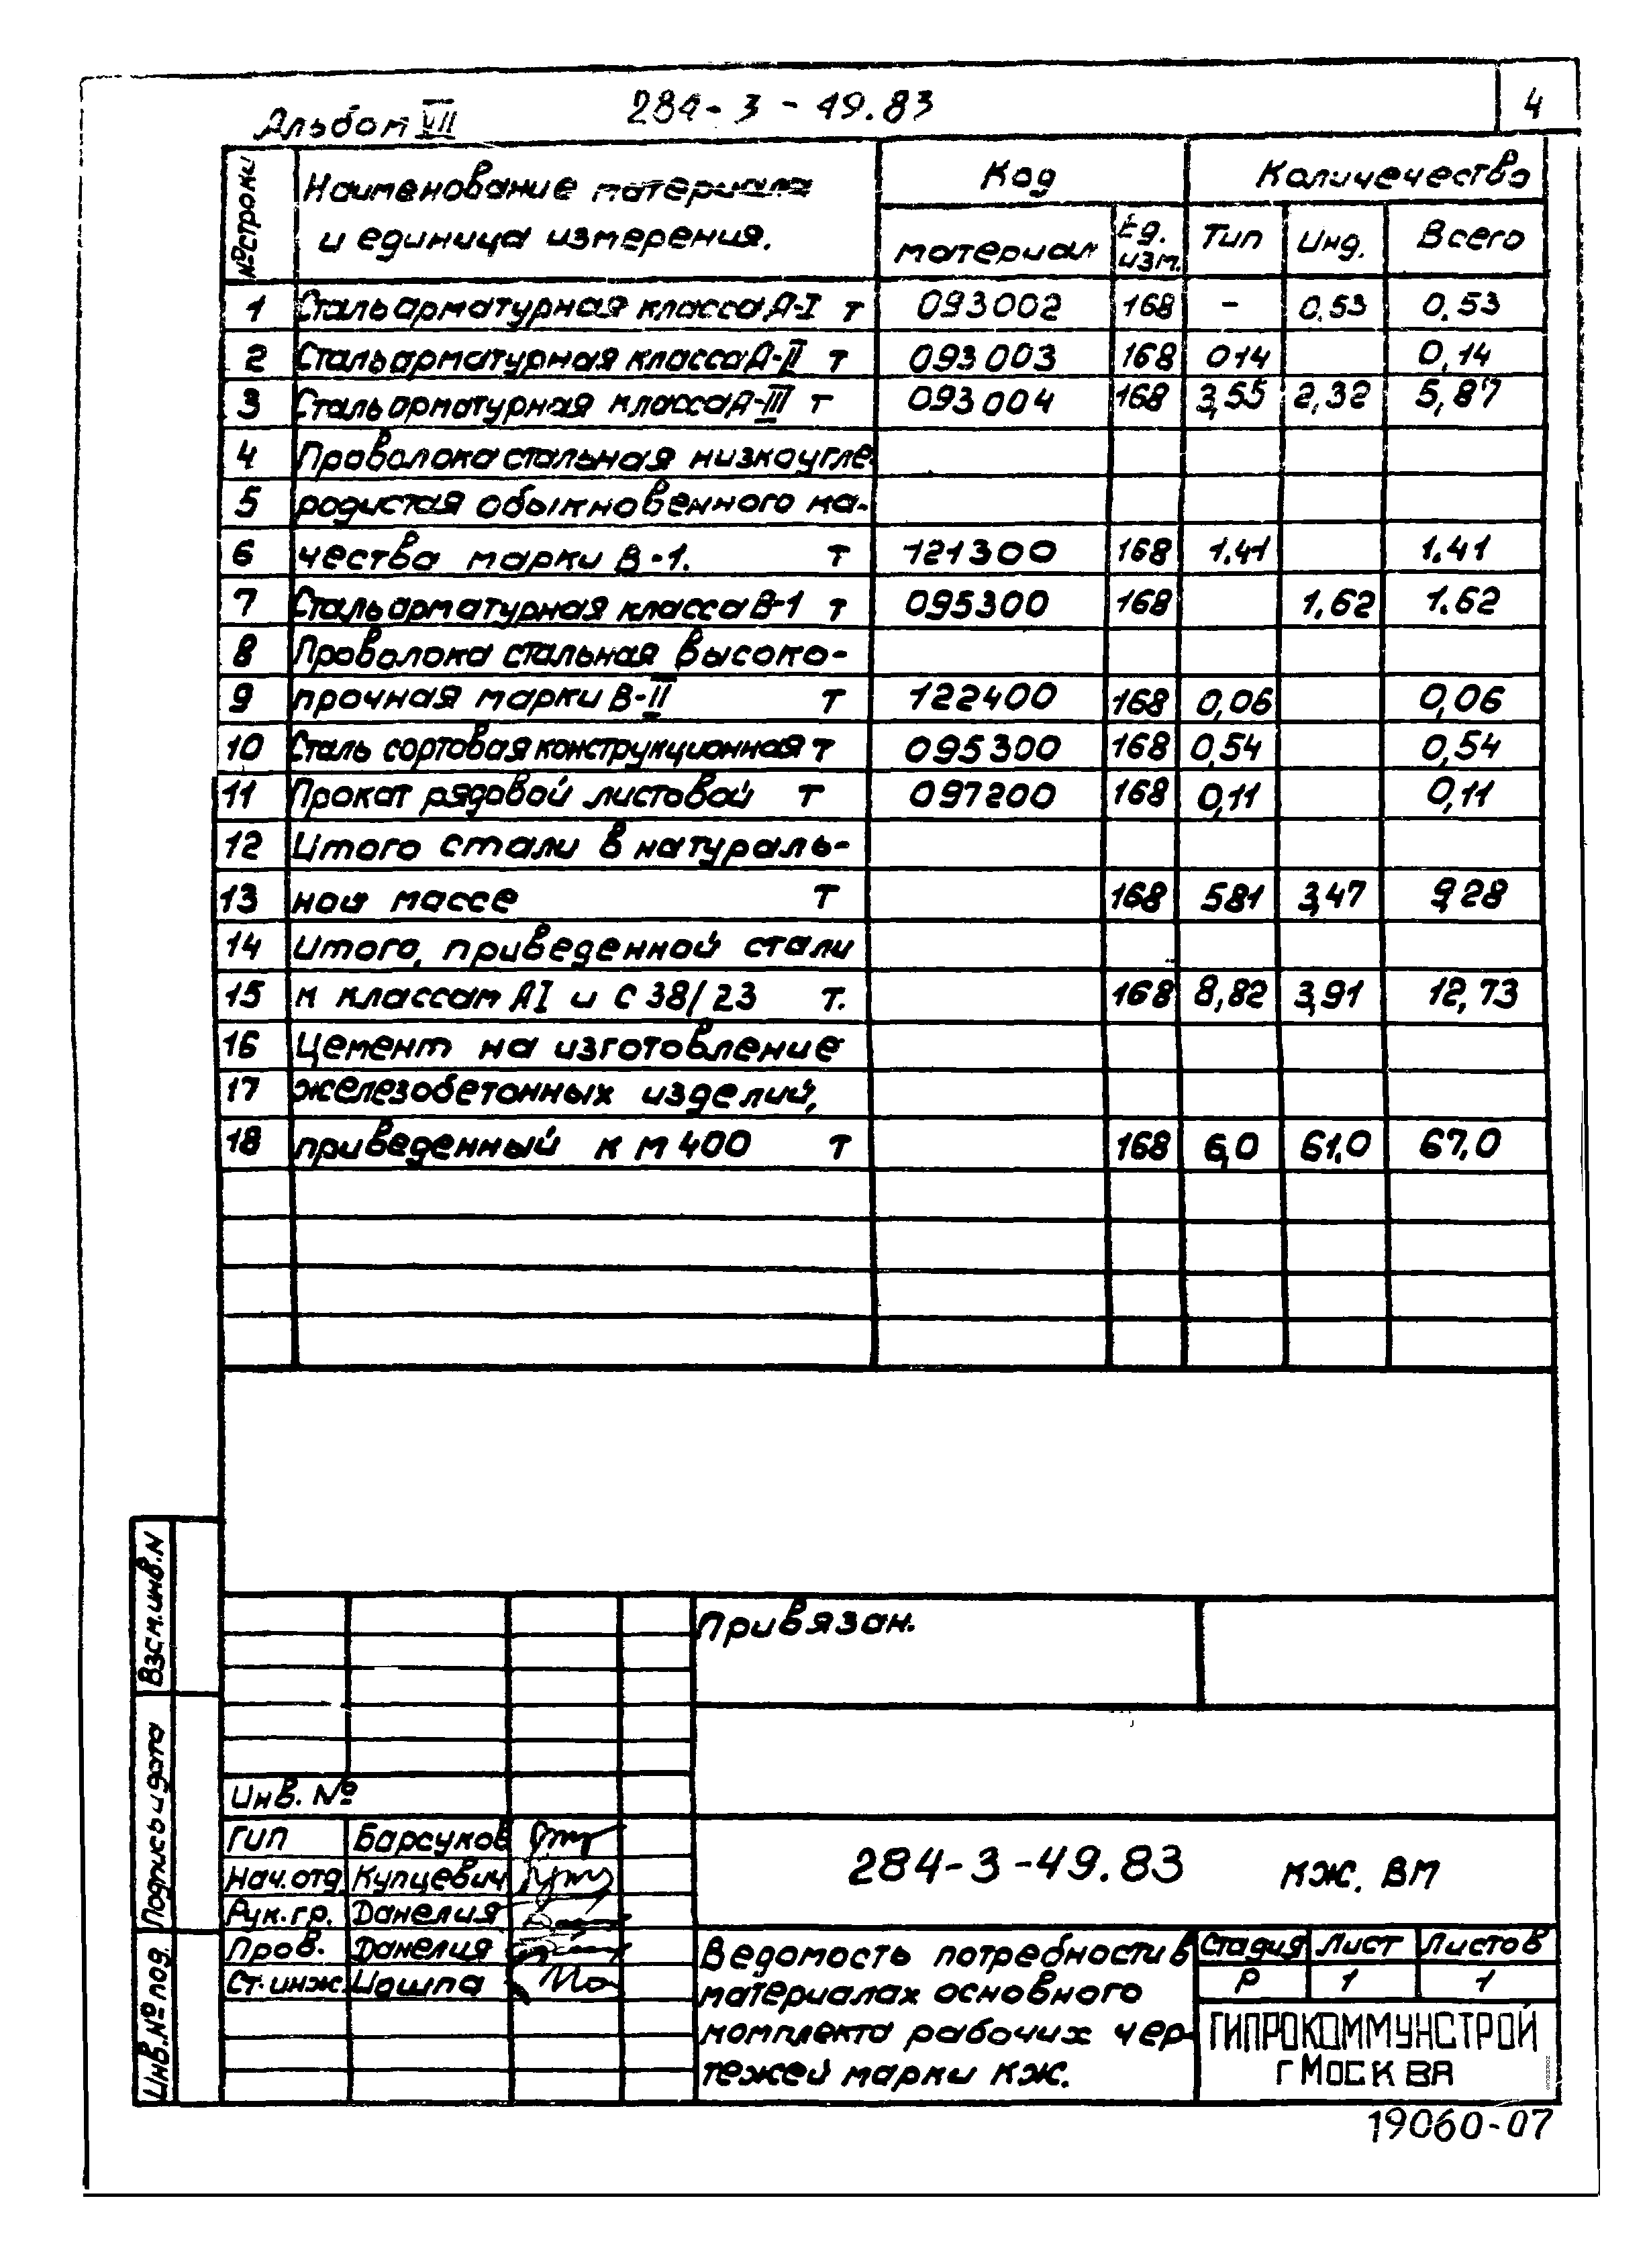 Альбом VII 284-3-49.83 4
№ строки Наименование материала и единица измерения. Код Количечество
материал Ед. изм. Тип Инд. Всего
1 Сталь арматурная класса А-I т 093002 168 - 0.53 0.53
2 Сталь арматурная класса А-II т 093003 168 014 0,14
3 Сталь арматурная класса А-III т 093004 168 3,55 2,32 5,87
4 Проволока стальная низкоугле-
5 родистая обыкновенного ка-
6 чества марки В-1. т 121300 168 1.41 1.41
7 Сталь арматурная класса В-1 т 095300 168 1,62 1.62
8 Проволока стальная высоко-
9 прочная марки В-II т 122400 168 0,06 0,06
10 Сталь сортовая конструкционная т 095300 168 0,54 0,54
11 Прокат рядовой листовой т 097200 168 0,11 0,11
12 Итого стали в натураль-
13 ной массе т 168 581 3,47 9,28
14 Итого, приведенной стали
15 к классам АI и С 38/23 т. 168 8,82 3,91 12,73
16 Цемент на изготовление
17 железобетонных изделий,
18 приведенный к м 400 т 168 6,0 61,0 67,0
Взам.инв.N
Подпись и дата
Инв.№ под
Привязан.
Инв. №
ГИП Барсуков
Нач.отд. Купцевич
Рук.гр. Данелия
Пров. Данелия
Ст.инж. Цошпа
284-3-49.83 КЖ. ВМ
Ведомость потребности в
материалах основного
комплекта рабочих чер-
тежей марки КЖ.
Стадия Лист Листов
Р 1 1
ГИПРОКОММУНСТРОЙ
г МОСКВА
19060-07